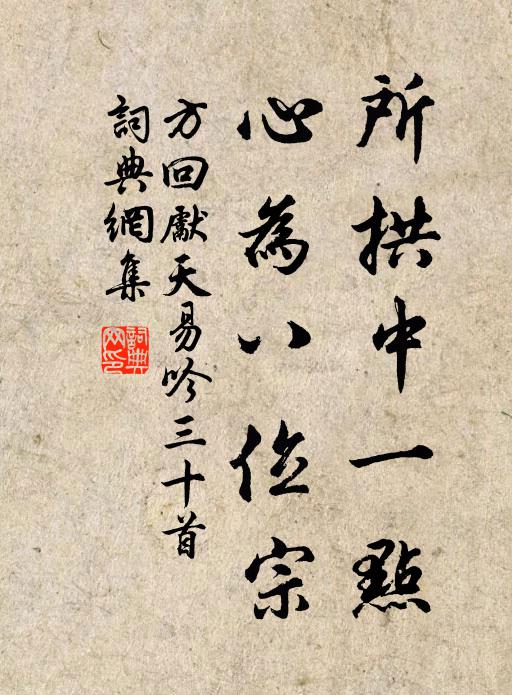 所拱中一點
心為八位宗
方回獻天易吟三十首
詞典網集
詞典网印